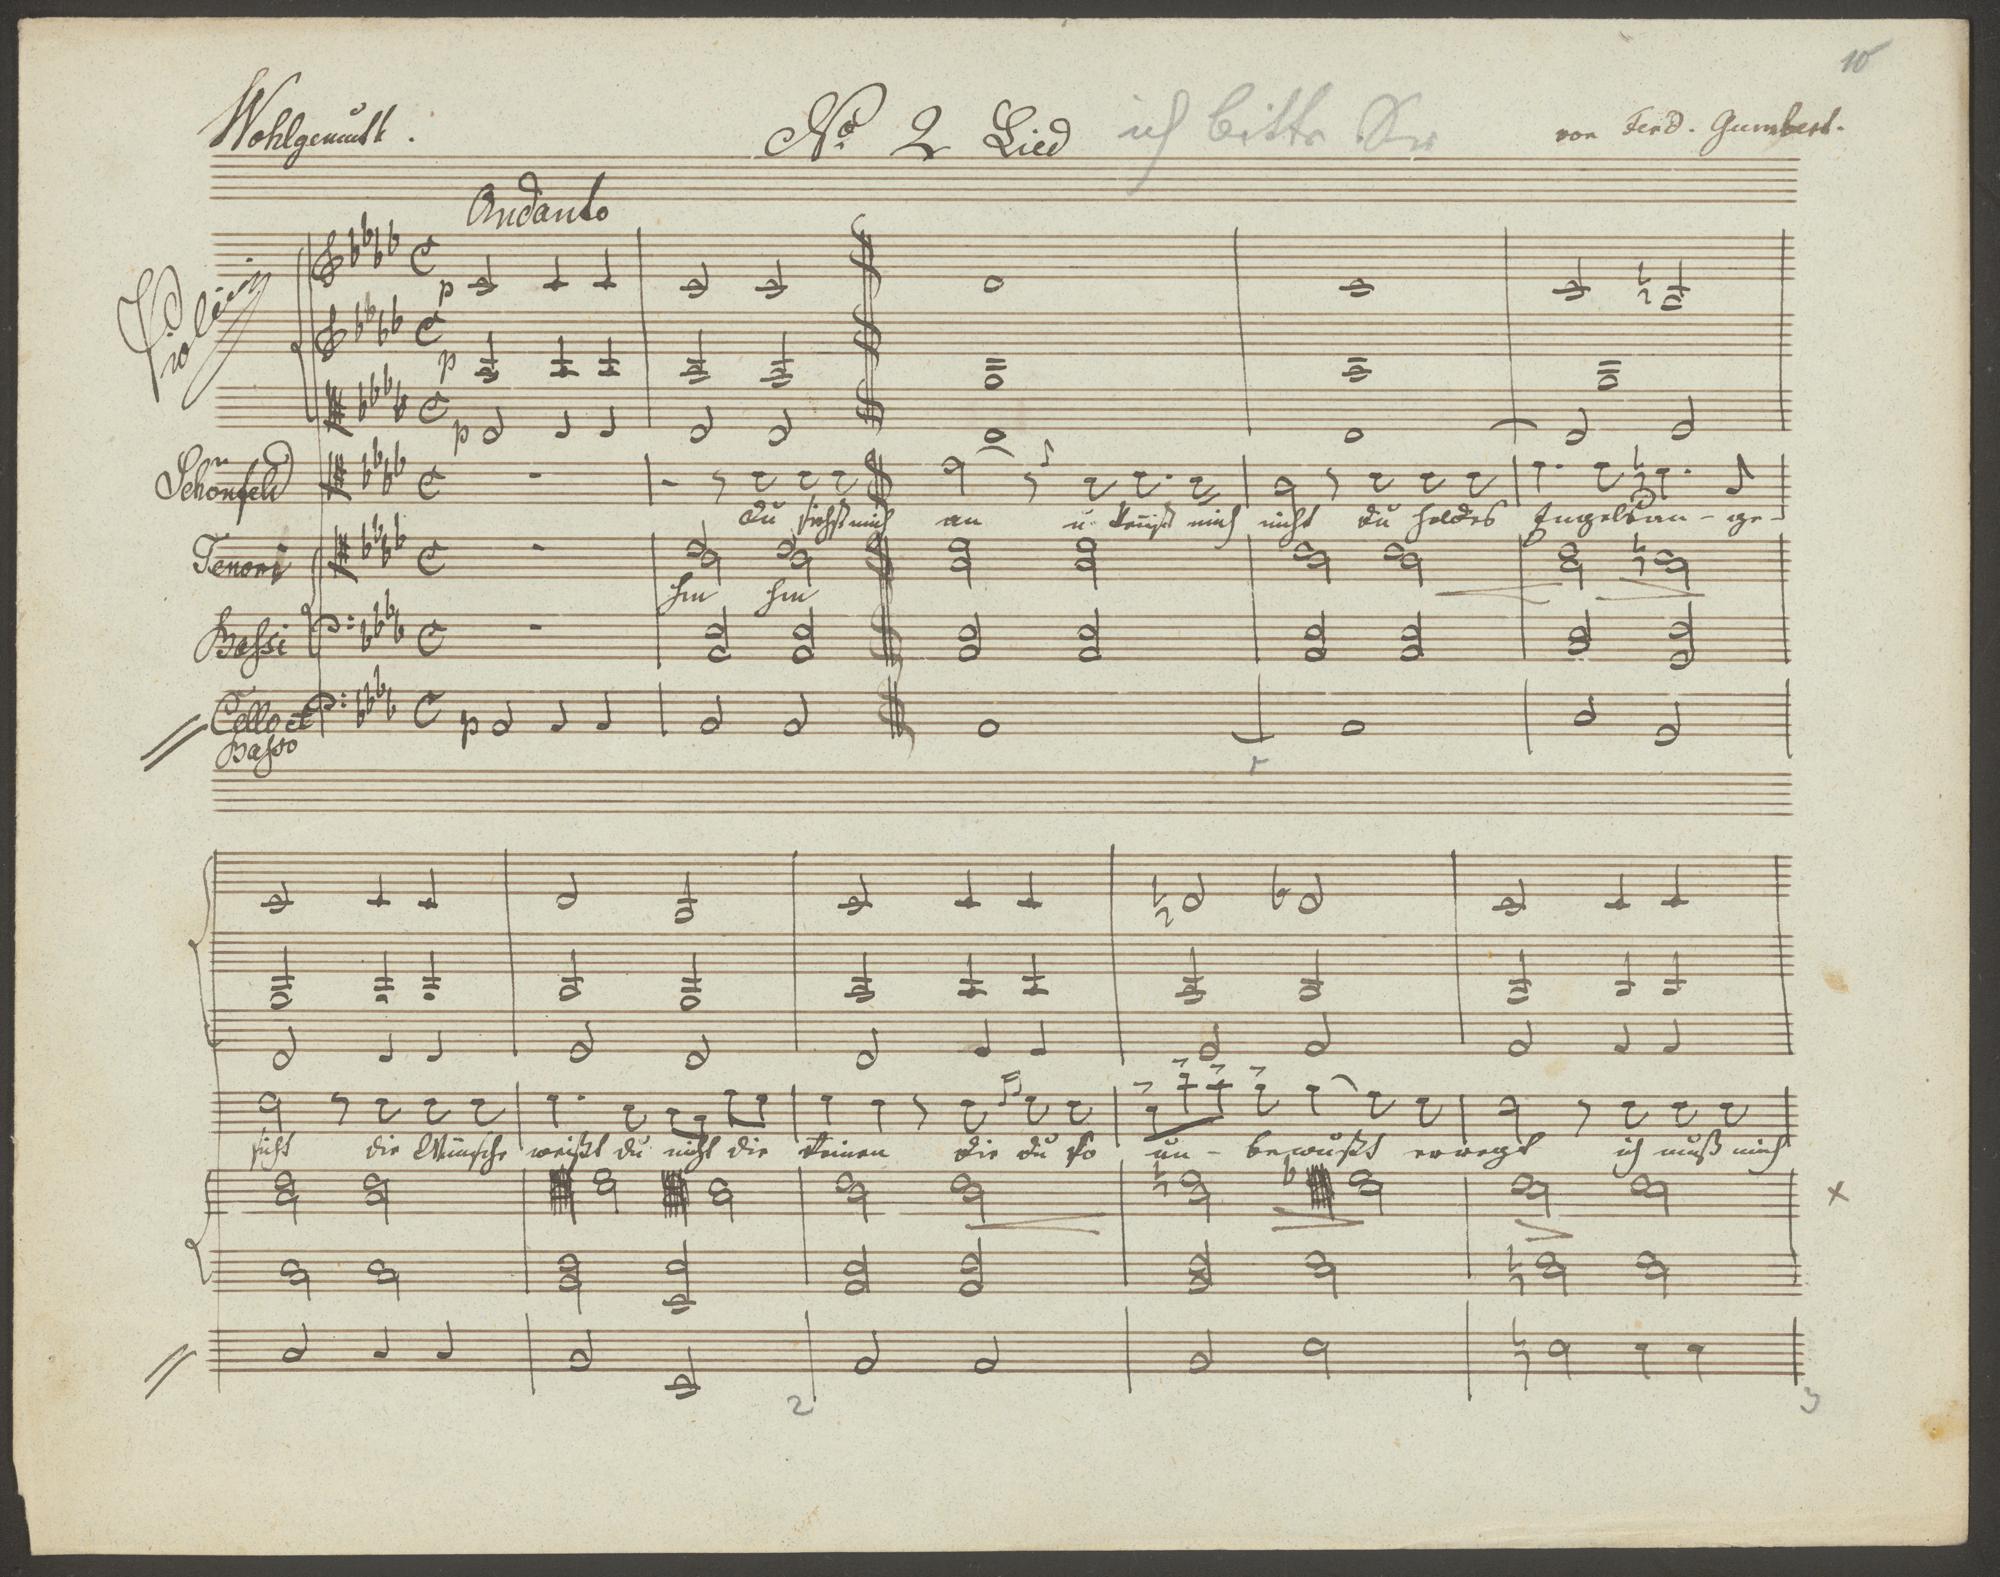 10
Wohlgemuth. No 2 Lied ich bitte von Ferd. Gumbert.
Andante
Violini
p
p
p
Schönfeld
du siehst mich an u. kennst mich nicht du holdes Engelsan-ge-
Tenori
hm hm
Bassi
Cello et p
Basso
sicht die Wünsche weißt du nicht die reinen die du so un-bewußt erregt ich muß mich
2 3